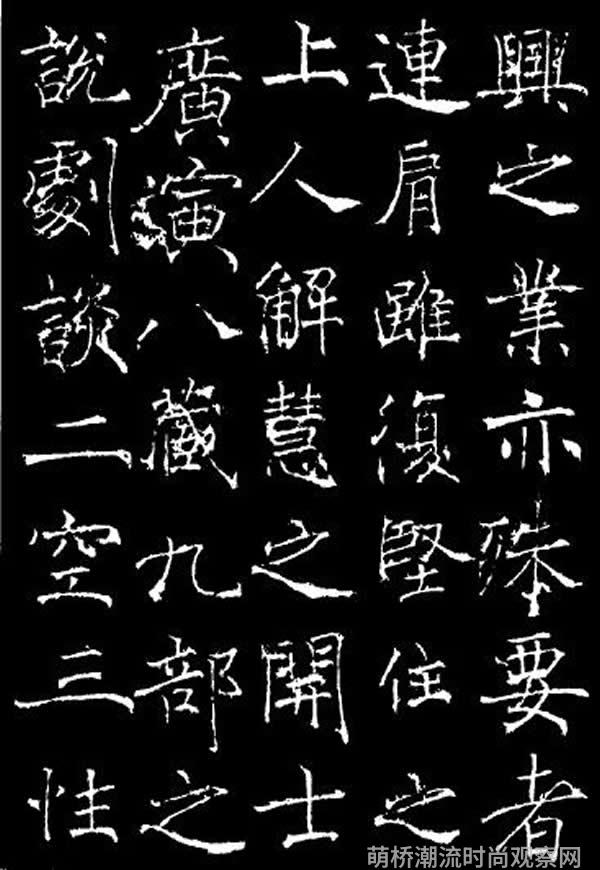 興之業亦殊要者
連肩雖復堅住之
上人解慧之開士
廣演八藏九部之
說劇談二空三性
萌桥潮流时尚观察网